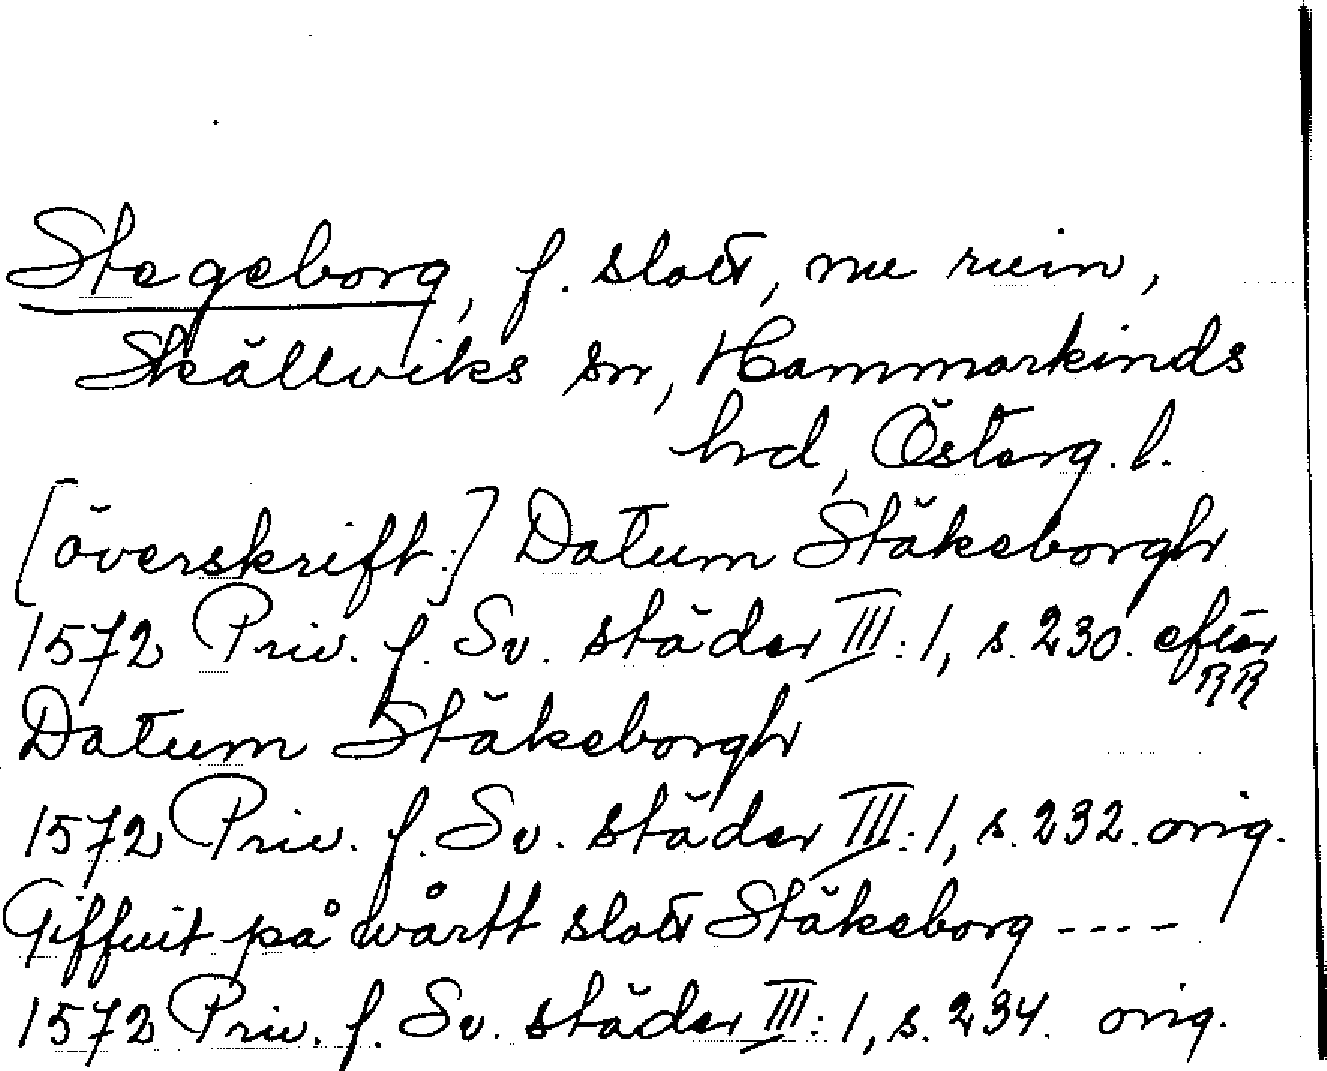 Stegeborg, f. slott, nu ruin,
Skällviks sn, Hammarkinds
hrd, Österg. l.
[överskrift:] Datum Stäkeborgh
1572 Priv. f. Sv. städer III:1, s. 230. efter
RR
Datum Stäkeborgh
1572 Priv. f. Sv. städer III:1, s. 232. orig.
Giffuit på wårtt slott Stäkeborg ----
1572 Priv. f. Sv. städer III:1, s. 234. orig.